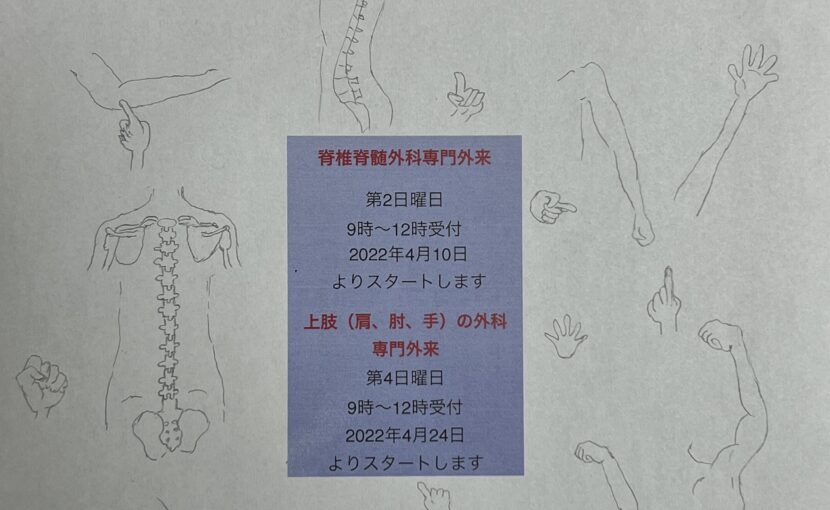 脊椎脊髄外科専門外来
第2日曜日
9時〜12時受付
2022年4月10日
よりスタートします
上肢（肩、肘、手）の外科
専門外来
第4日曜日
9時〜12時受付
2022年4月24日
よりスタートします